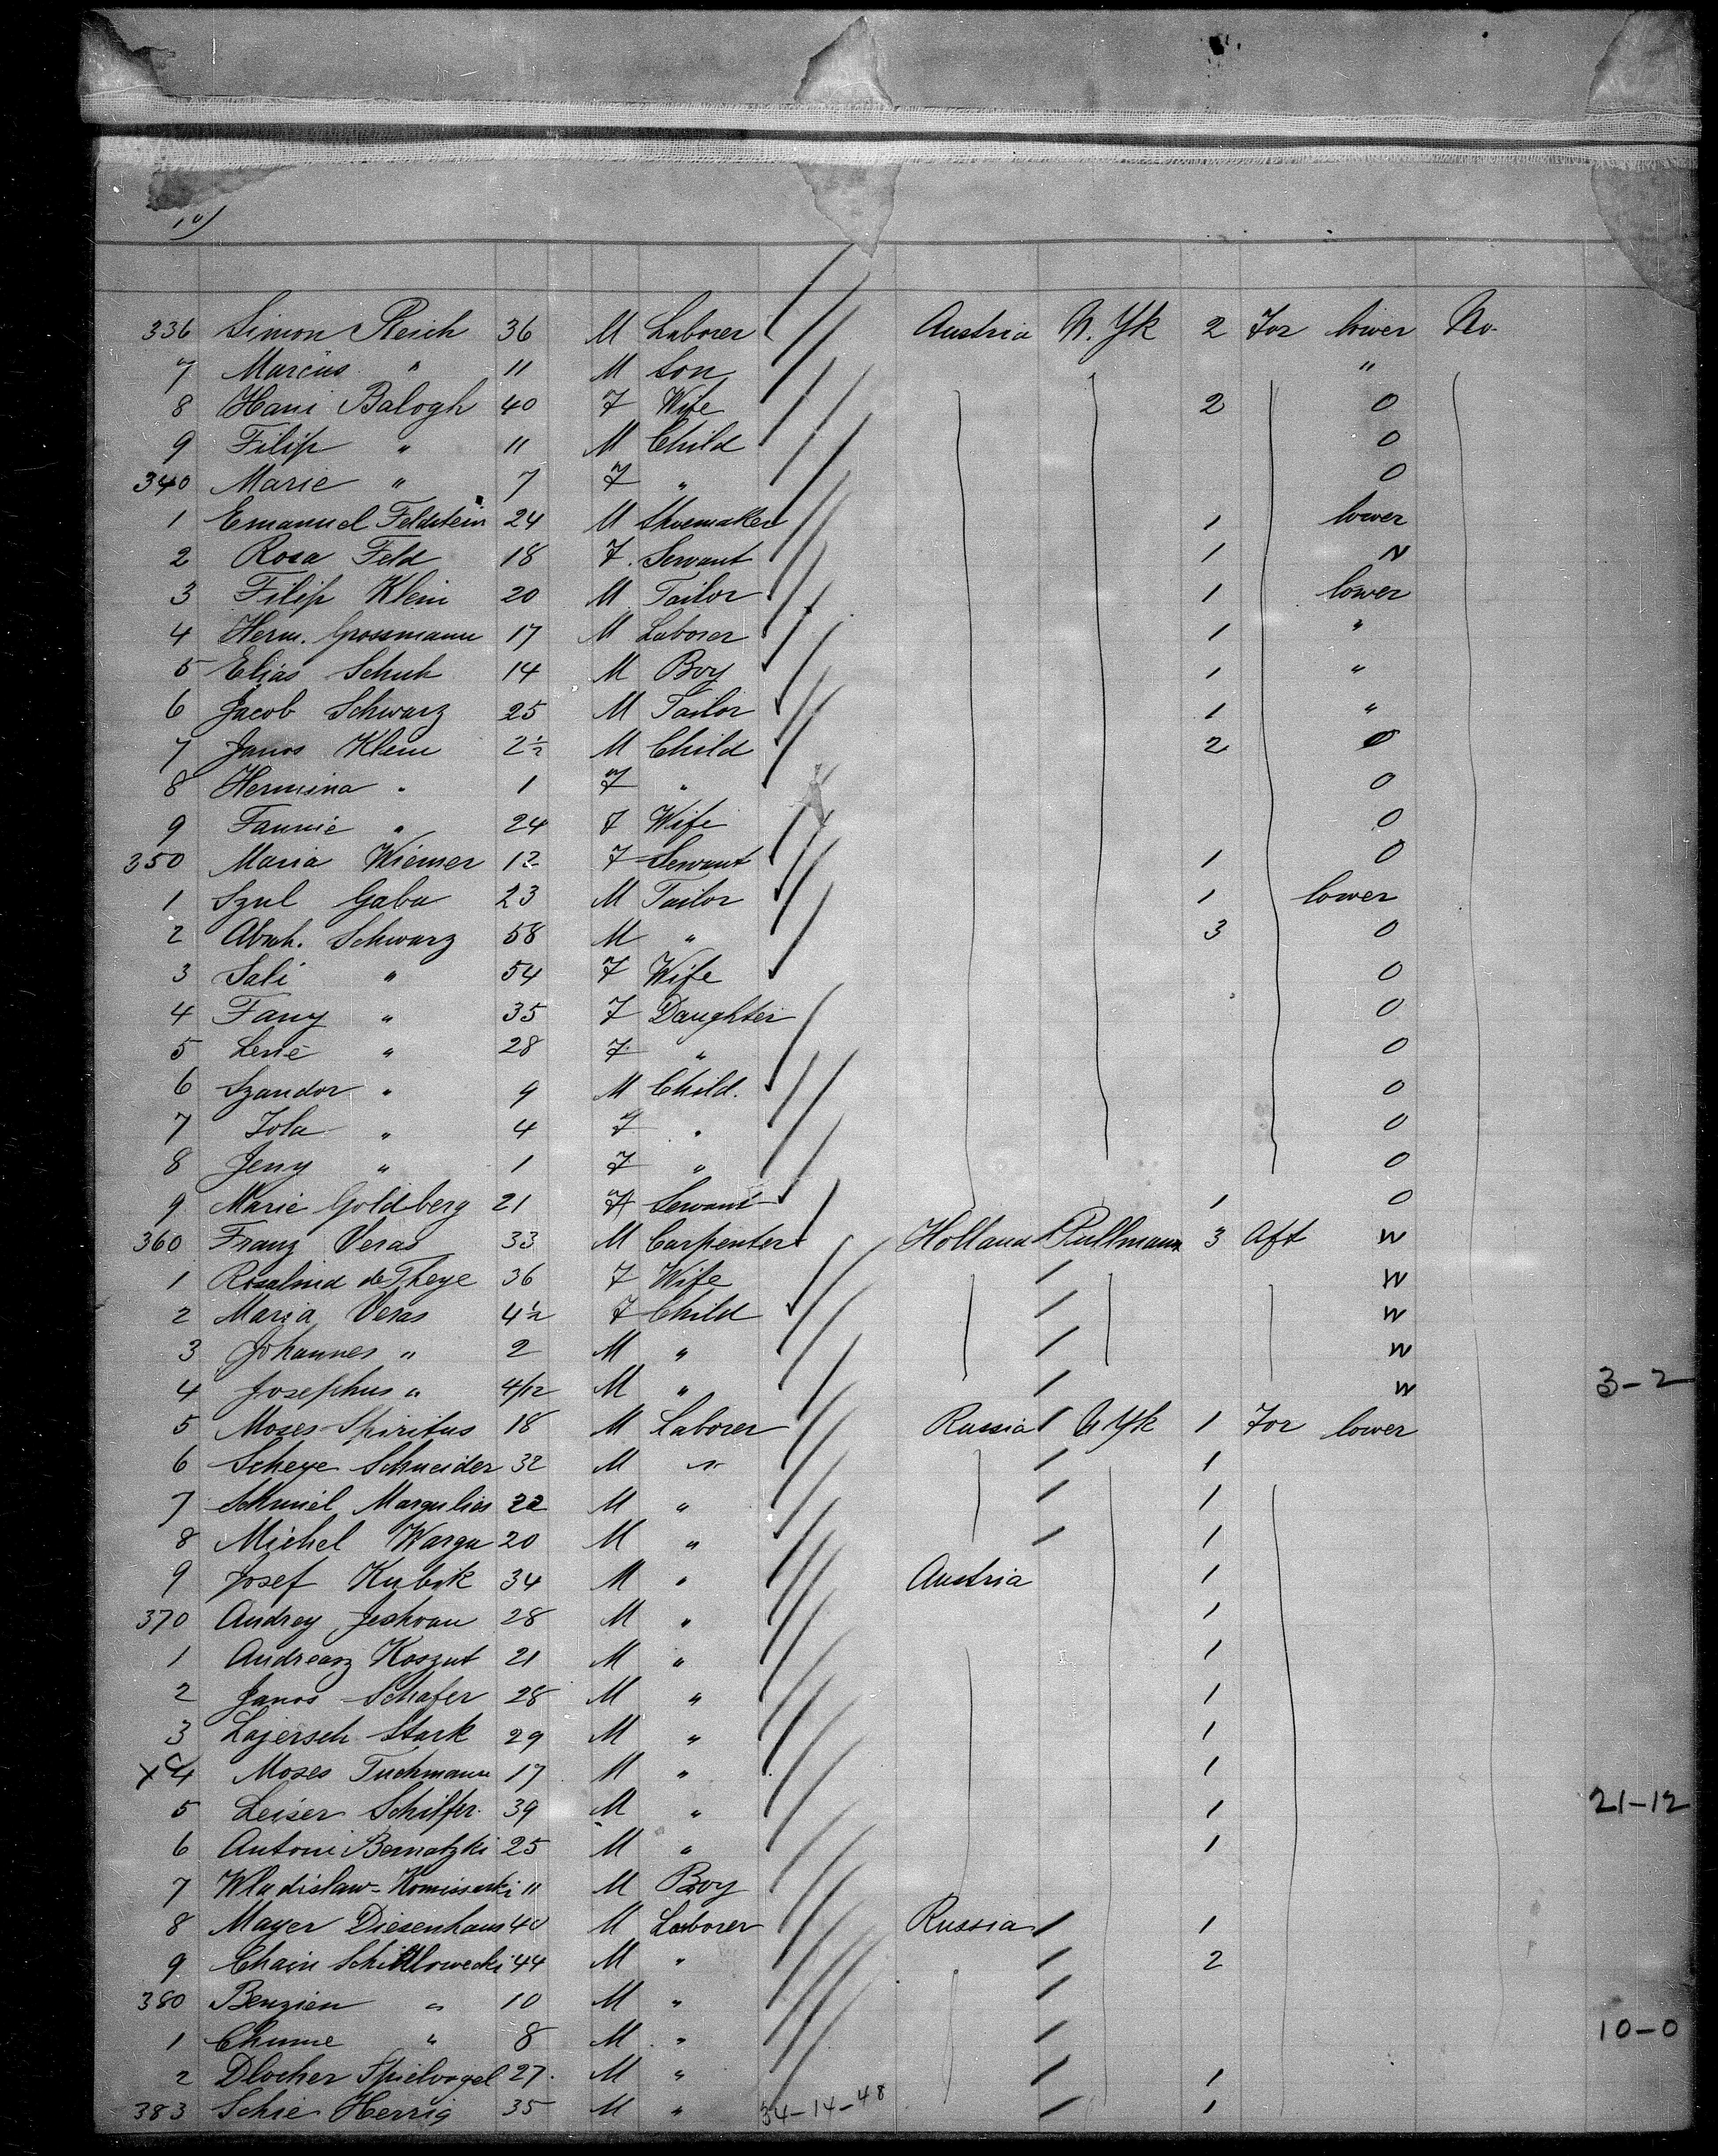 10)
336 Simon Reich 36 M Laborer Austria N. Yk 2 For lower No
7 Marcus " 11 M Son "
8 Hani Balogh 40 F Wife 2 0
9 Filip " 11 M Child 0
340 Marie " 7 F " 0
1 Emanuel Feldstein 24 M Shoemaker 1 lower
2 Rosa Feld 18 F. Servant 1 N
3 Filip Klein 20 M Tailor 1 lower
4 Herm. Grossmann 17 M Laborer 1 "
5 Elias Schuh 14 M Boy 1 "
6 Jacob Schwarz 25 M Tailor 1 "
7 Janos Klein 2½ M Child 2 0
8 Hermina " 1 F " 0
9 Fannie " 24 F Wife 0
350 Maria Wiemer 12 F Servant 1 0
1 Szul Gabu 23 M Tailor 1 lower
2 Abrah. Schwarz 58 M " 3 0
3 Sali " 54 F Wife 0
4 Fany " 35 F Daughter 0
5 Lenie " 28 F " 0
6 Szandor " 9 M Child. 0
7 Iola " 4 F " 0
8 Jeny " 1 F " 0
9 Marie Goldberg 21 F Servant 1 0
360 Franz Veras 33 M Carpenter Holland Pullmann 3 Aft W
1 Rosalind de Theye 36 F Wife W
2 Maria Veras 4½ F Child W
3 Johannes " 2 M " W
4 Josephus " 4/12 M " W 3-2
5 Moses Spiritus 18 M Laborer Russia N Yk 1 For lower
6 Scheye Schneider 32 M " 1
7 Schmiel Margulies 22 M " 1
8 Michel Warga 20 M " 1
9 Josef Kubik 34 M " Austria 1
370 Andrey Jeshvan 28 M " 1
1 Andreasz Koszut 21 M " 1
2 Janos Schafer 28 M " 1
3 Lajersch Stark 29 M " 1
X 4 Moses Tuchmann 17 M " 1
5 Leiser Schiffer. 39 M " 1 21-12
6 Antoni Bernatzki 25 M " 1
7 Wladislaw Komissarki 11 M Boy
8 Mayer Diesenhaus 40 M Laborer Russia 1
9 Chain Schidlowecki 44 M " 2
380 Benzien " 10 M "
1 Chume " 8 M " 10-0
2 Dlocher Spielvogel 27. M " 1
383 Schie Herzig 35 M " 34-14-48 1